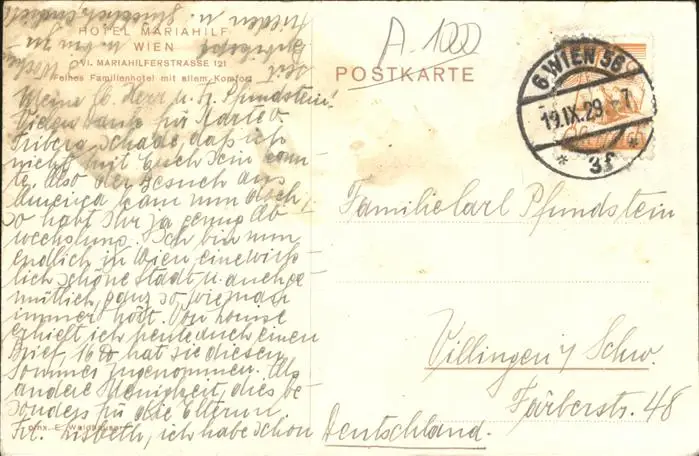 HOTEL MARIAHILF
WIEN
VI. MARIAHILFERSTRASSE 121
Feines Familienhotel mit allem Komfort
POSTKARTE
A-1000
6. WIEN 56
19.IX.29 - 7
* 3f *
Meine lb. Herr u. Fr. Pfundstein!
Vielen Dank für Karte v.
Triberg. Schade, daß ich
nicht mit Euch sein konn-
te. Also der Besuch aus
Amerika kam nun doch,
so habt Ihr ja genug Ab
wechslung. Ich bin nun
endlich in Wien, eine wirk-
lich schöne Stadt u. auch ge
mütlich, ganz so wie man
immer hört. Von
erhielt ich heute auch einen
Brief, 16 ℔ hat sie diesen
Sommer zugenommen. Als
andere Neuigkeit, dies be
sonders für die Eltern v.
Frl. Lisbeth, ich habe schon
Familie Carl Pfundstein
Villingen / Schw.
Färberstr. 48
Deutschland.
E. Waldhäuser